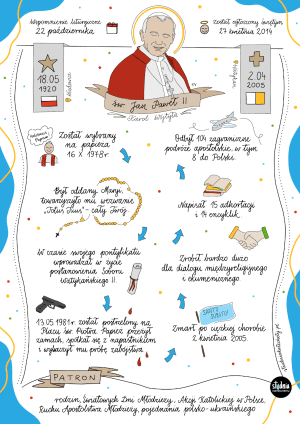 wspomnienie liturgiczne
22 października
został ogłoszony świętym
27 kwietnia 2014
18.05
1920
2.04
2005
św. Jan Paweł II
Karol Wojtyła
Został wybrany
na papieża
16 X 1978r.
Odbył 104 zagraniczne
podróże apostolskie w tym
8 do Polski.
Był oddany Maryi,
towarzyszyło mu wezwanie
„Totus Tuus" - cały Twój
Napisał 15 adhortacji
i 14 encyklik.
W czasie swojego pontyfikatu
wprowadzał w życie
postanowienia Soboru
Watykańskiego II.
Zrobił bardzo dużo
dla dialogu międzyreligijnego
i ekumenicznego.
13.05.1981r. został postrzelony na
Placu św. Piotra. Papież przeżył
zamach, spotkał się z napastnikiem
i wybaczył mu próbę zabójstwa.
SANTO
SUBITO!
Zmarł po ciężkiej chorobie
2 kwietnia 2005.
PATRON
rodzin, Światowych Dni Młodzieży, Akcji Katolickiej w Polsce,
Ruchu Apostolstwa Młodzieży, pojednania polsko-ukraińskiego